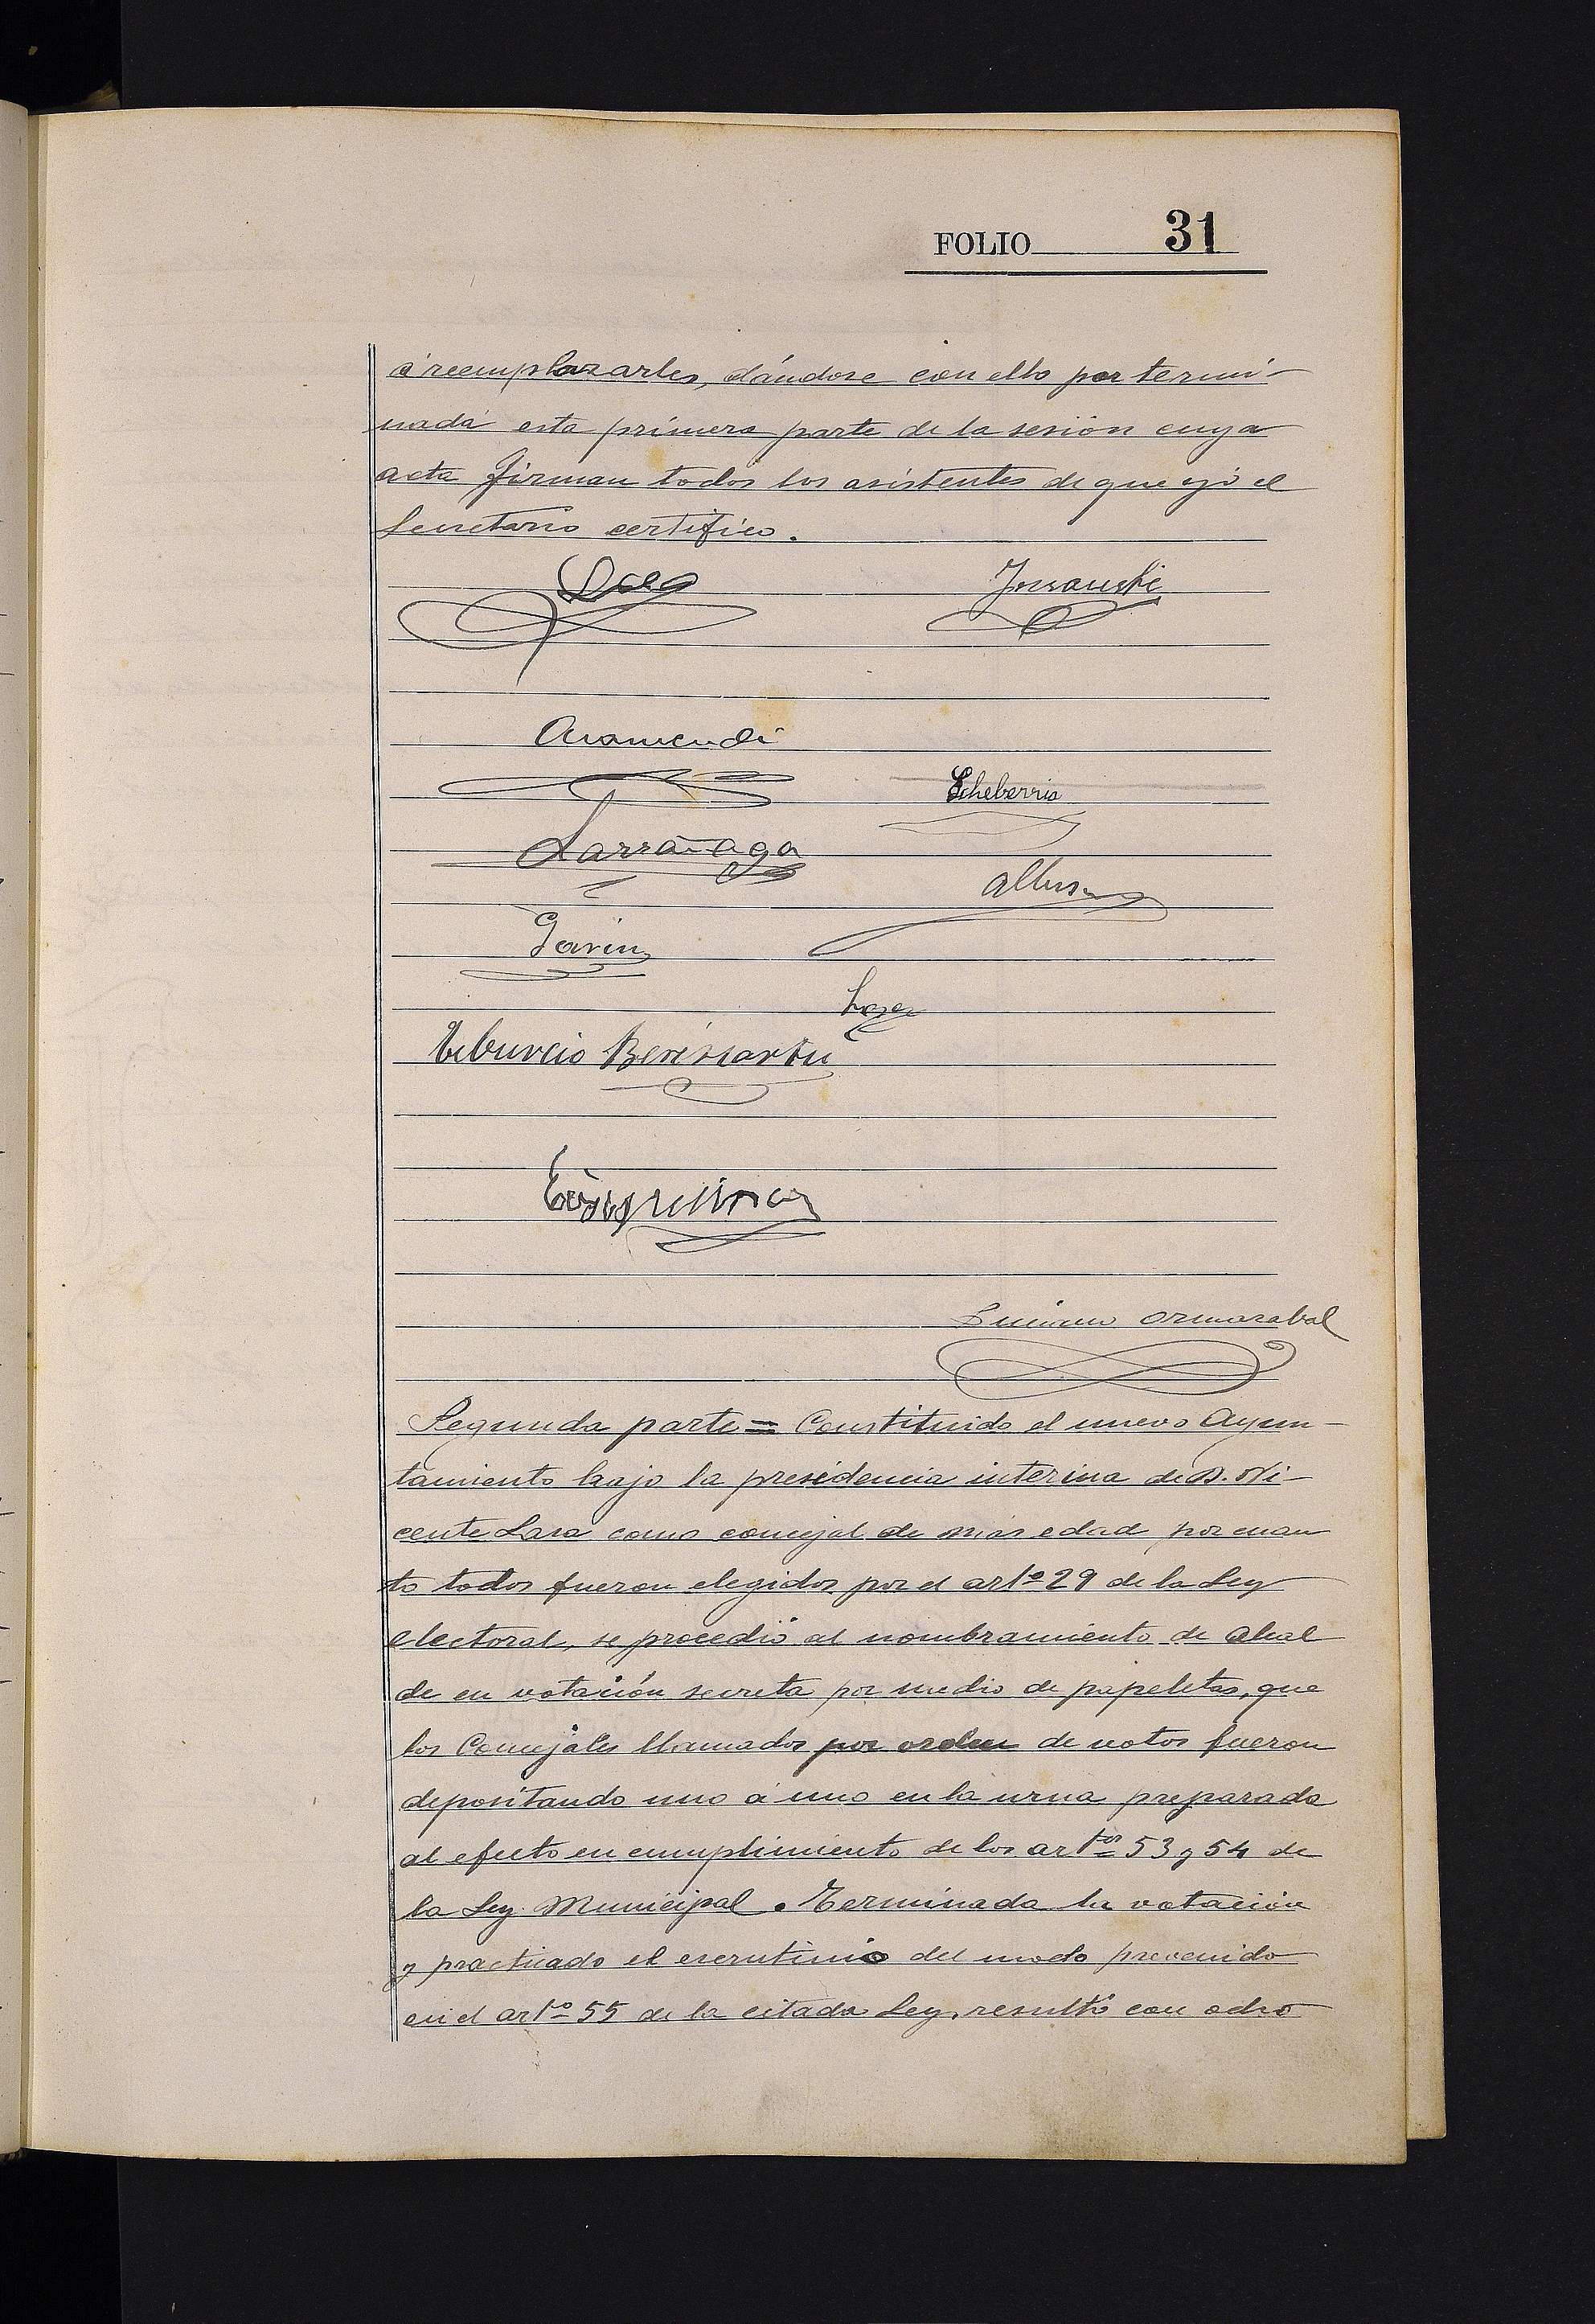 FOLIO 31
á reemplazarles, dándose con ello por termi-
nada esta primera parte de la sesión cuya
acta firman todos los asistentes de que yó el
Secretario certifico.
Aramendi
Echeberria
Larrañaga
Gavin
Tiburcio Beristartu
Luciano Ormazabal
Segunda parte = Constituido el nuevo Ayun-
tamiento bajo la presidencia interina de D. Vi-
cente Lasa como concejal de más edad por cuan
to todos fueron elegidos por el artº 29 de la Ley
electoral, se procedió al nombramiento de Alcal
de en votación secreta por medio de papeletas, que
los Concejales llamados por orden de votos fueron
depositando uno á uno en la urna preparada
al efecto en cumplimiento de los artos 53 y 54 de
la Ley Municipal. Terminada la votación
y practicado el escrutinio del modo prevenido
en el artº 55 de la citada Ley, resultó con ocho